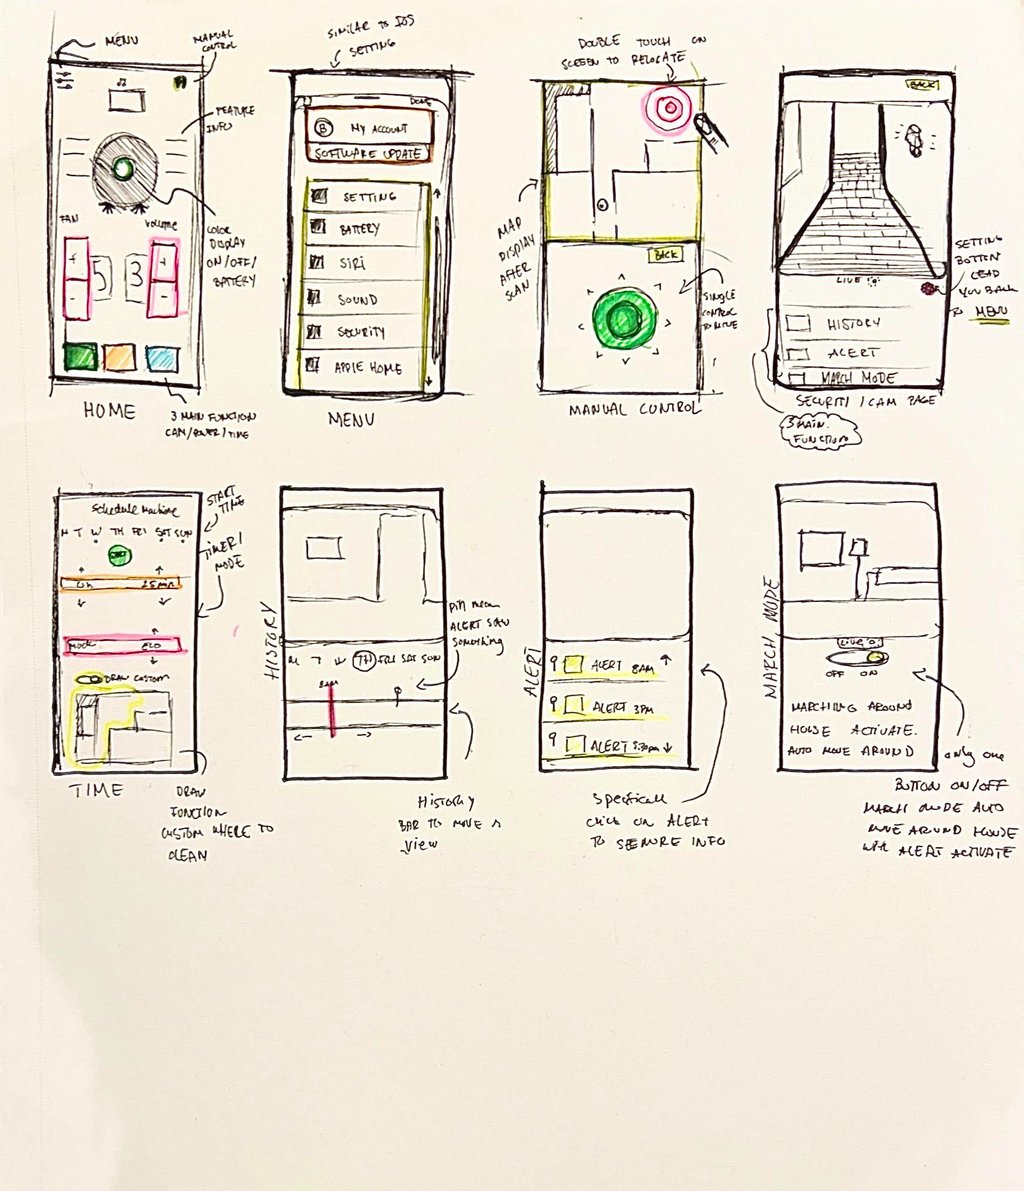 MENU
MANUAL
CONTROL
FEATURE
INFO
COLOR
DISPLAY
ON/OFF/
BATTERY
FAN
Volume
+
5
3
+
-
-
HOME
3 MAIN FUNCTION
CAM/POWER/TIME
SIMILAR TO IOS
SETTING
DONE
B MY ACCOUNT
SOFTWARE UPDATE
SETTING
BATTERY
SIRI
SOUND
SECURITY
APPLE HOME
MENU
DOUBLE TOUCH ON
SCREEN TO RELOCATE
MAP
DISPLAY
AFTER
SCAN
BACK
SINGLE
CONTROL
TO MOVE
MANUAL CONTROL
BACK
LIVE
SETTING
BOTTON
LEAD
YOU BACK
TO MENU
HISTORY
ALERT
MARCH MODE
SECURITY / CAM PAGE
3 MAIN
FUNCTION
Schedule Machine
M T W TH FRI SAT SUN
START
TIME
TIMER/
MODE
25 min
MODE ECO
DRAW CUSTOM
TIME
DRAW
FUNCTION
CUSTOM WHERE TO
CLEAN
HISTORY
M T W TH FRI SAT SUN
8AM
pin mean
ALERT SAW
something
HISTORY
BAR TO MOVE
view
ALERT
ALERT 8AM
ALERT 3PM
ALERT 5:30pm
click on ALERT
TO SEE MORE INFO
MARCH MODE
LIVE
OFF ON
MARCHING AROUND
HOUSE ACTIVATE.
AUTO MOVE AROUND
only one
BUTTON ON/OFF
MARCH MODE AUTO
MOVE AROUND HOUSE
with ALERT ACTIVATE